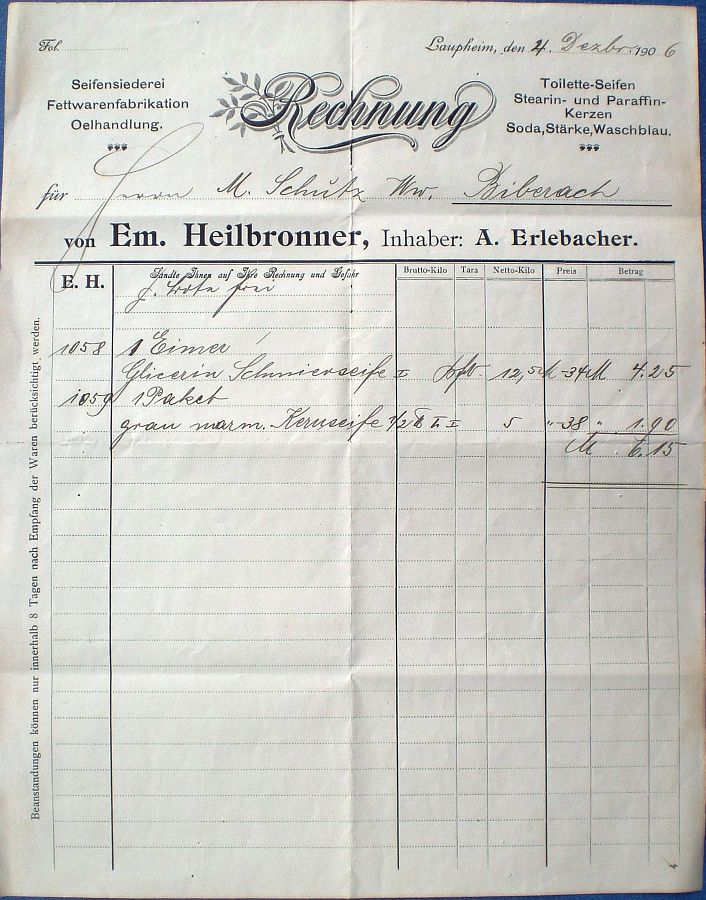 Fol.
Laupheim, den 4. Dezbr. 1906
Seifensiederei
Fettwarenfabrikation
Oelhandlung.
Rechnung
Toilette-Seifen
Stearin- und Paraffin-
Kerzen
Soda, Stärke, Waschblau.
für Herrn M. Schütz Ww. Biberach
von Em. Heilbronner, Inhaber: A. Erlebacher.
E. H. Sandte Ihnen auf Ihre Rechnung und Gefahr Brutto-Kilo Tara Netto-Kilo Preis Betrag
p. Bote frei
1058 1 Eimer
Glicerin Schmierseife I 12,5 M -34 M 4.25
1059 1 Paket
grau marm. Kernseife 1/2 5 " -38 " 1.90
M 6.15
Beanstandungen können nur innerhalb 8 Tagen nach Empfang der Waren berücksichtigt werden.